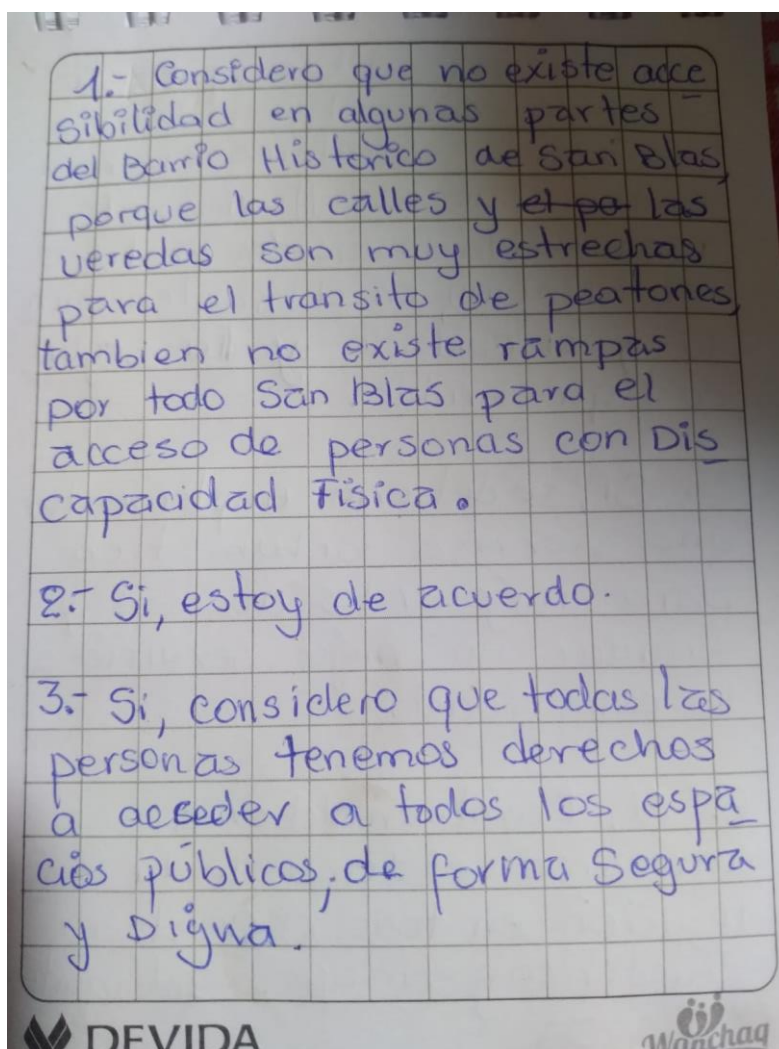 1.- Considero que no existe acce
sibilidad en algunas partes
del Barrio Historico de San Blas,
porque las calles y el pe las
veredas son muy estrechas
para el transito de peatones,
tambien no existe rampas
por todo San Blas para el
acceso de personas con Dis
capacidad Fisica.
2.- Si, estoy de acuerdo.
3.- Si, considero que todas las
personas tenemos derechos
a acceder a todos los espa
cios públicos, de forma Segura
y Digna.
DEVIDA
Wanchaq